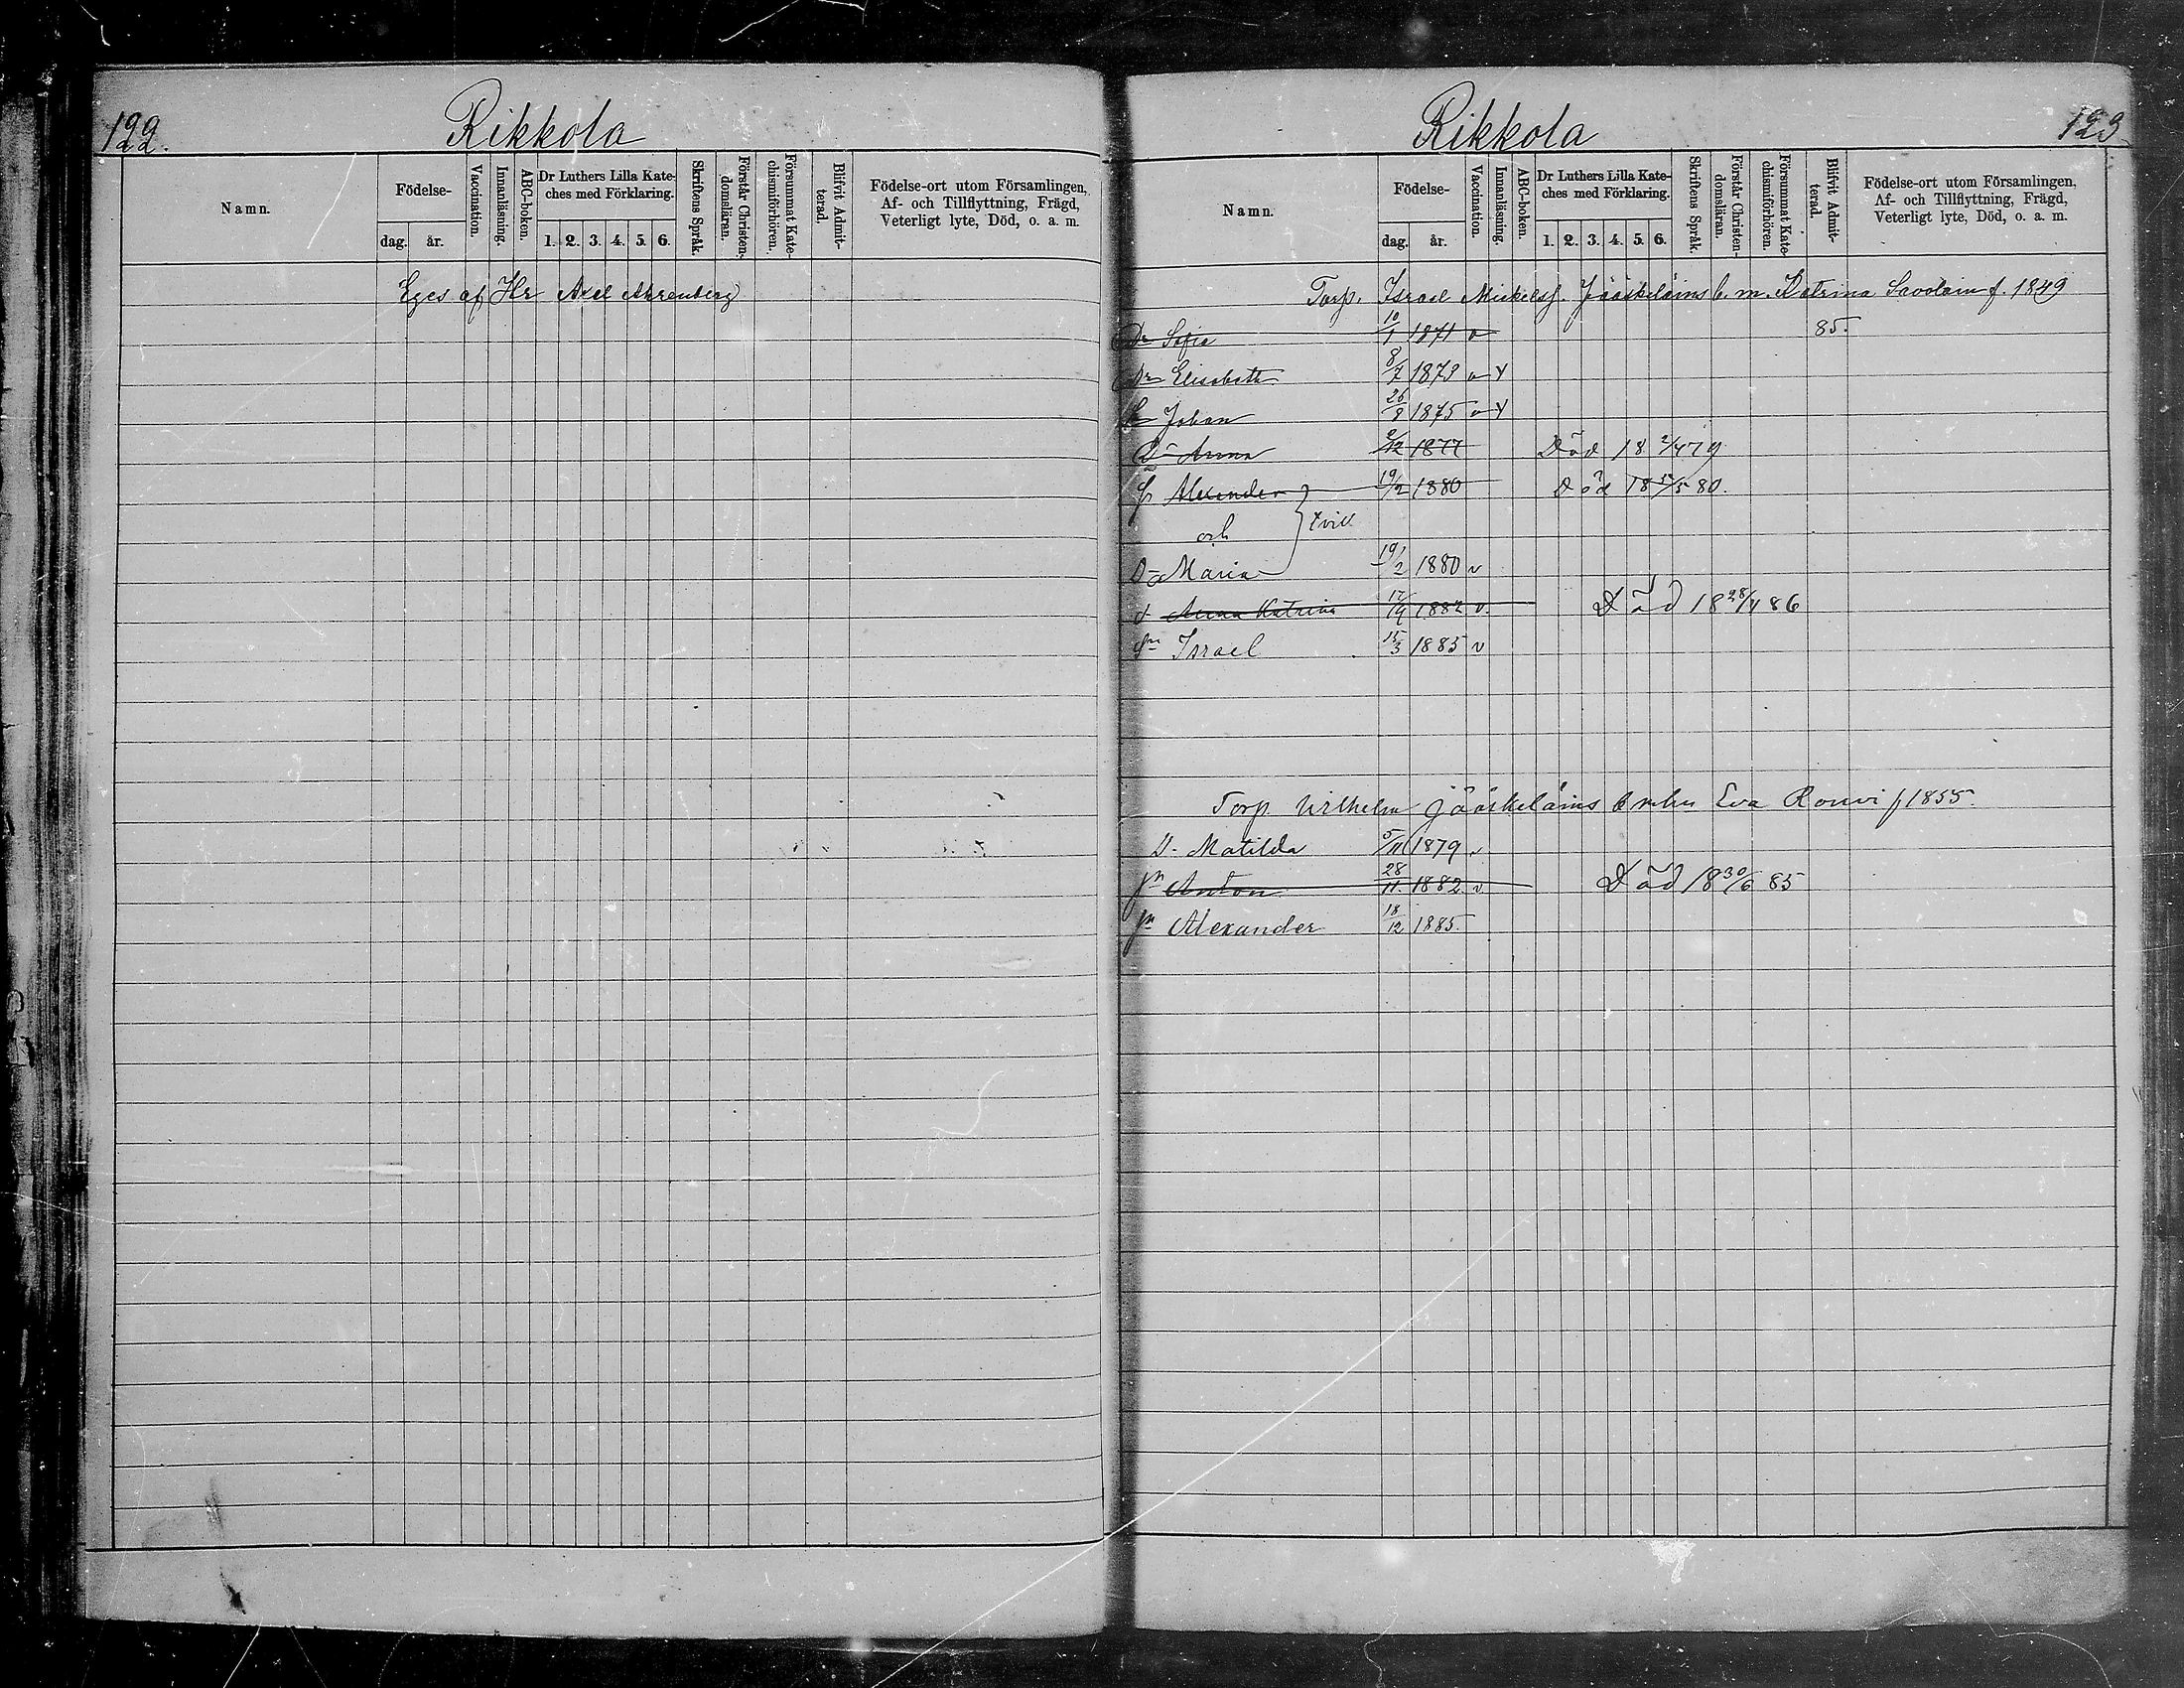 122. Rikkola
Namn.
Födelse-
dag. år.
Vaccination.
Innanläsning.
ABC-boken.
Dr Luthers Lilla Kate-
ches med Förklaring.
1. 2. 3. 4. 5. 6.
Skriftens Språk.
Förstår Christen-
domsläran.
Försummat Kate-
chismiförhören.
Blifvit Admit-
terad.
Födelse-ort utom Församlingen,
Af- och Tillflyttning, Frägd,
Veterligt lyte, Död, o. a. m.
Eges af Hr Axel Ahrenberg
Rikkola 123
Namn.
Födelse-
dag. år.
Vaccination.
Innanläsning.
ABC-boken.
Dr Luthers Lilla Kate-
ches med Förklaring.
1. 2. 3. 4. 5. 6.
Skriftens Språk.
Förstår Christen-
domsläran.
Försummat Kate-
chismiförhören.
Blifvit Admit-
terad.
Födelse-ort utom Församlingen,
Af- och Tillflyttning, Frägd,
Veterligt lyte, Död, o. a. m.
Torp. Israel Mickelsf. Jääskeläins b. m. Katrina Savolain f. 1849
Dr Sofia 10/1 1871 v 85.
Dr Elisabeth 8/7 1873 v Y
Sn Johan 26/8 1875 v Y
Dr Anna /12 1877 Död 18 2/4 79
Sn Alexander 19/2 1880 Död 18 /5 80.
och tvill
Dr Maria 19/2 1880 v
d- Anna Katrina 17/9 1882 v. Död 18 28/4 86
Sn Israel 15/3 1885 v
Torp. Wilhelm Jääskeläins b mhu Eva Rouvi f 1855.
D- Matilda 5/11 1879 v
Sn Anton 28/11 1882 v Död 18 30/6 85
Sn Alexander 18/12 1885.